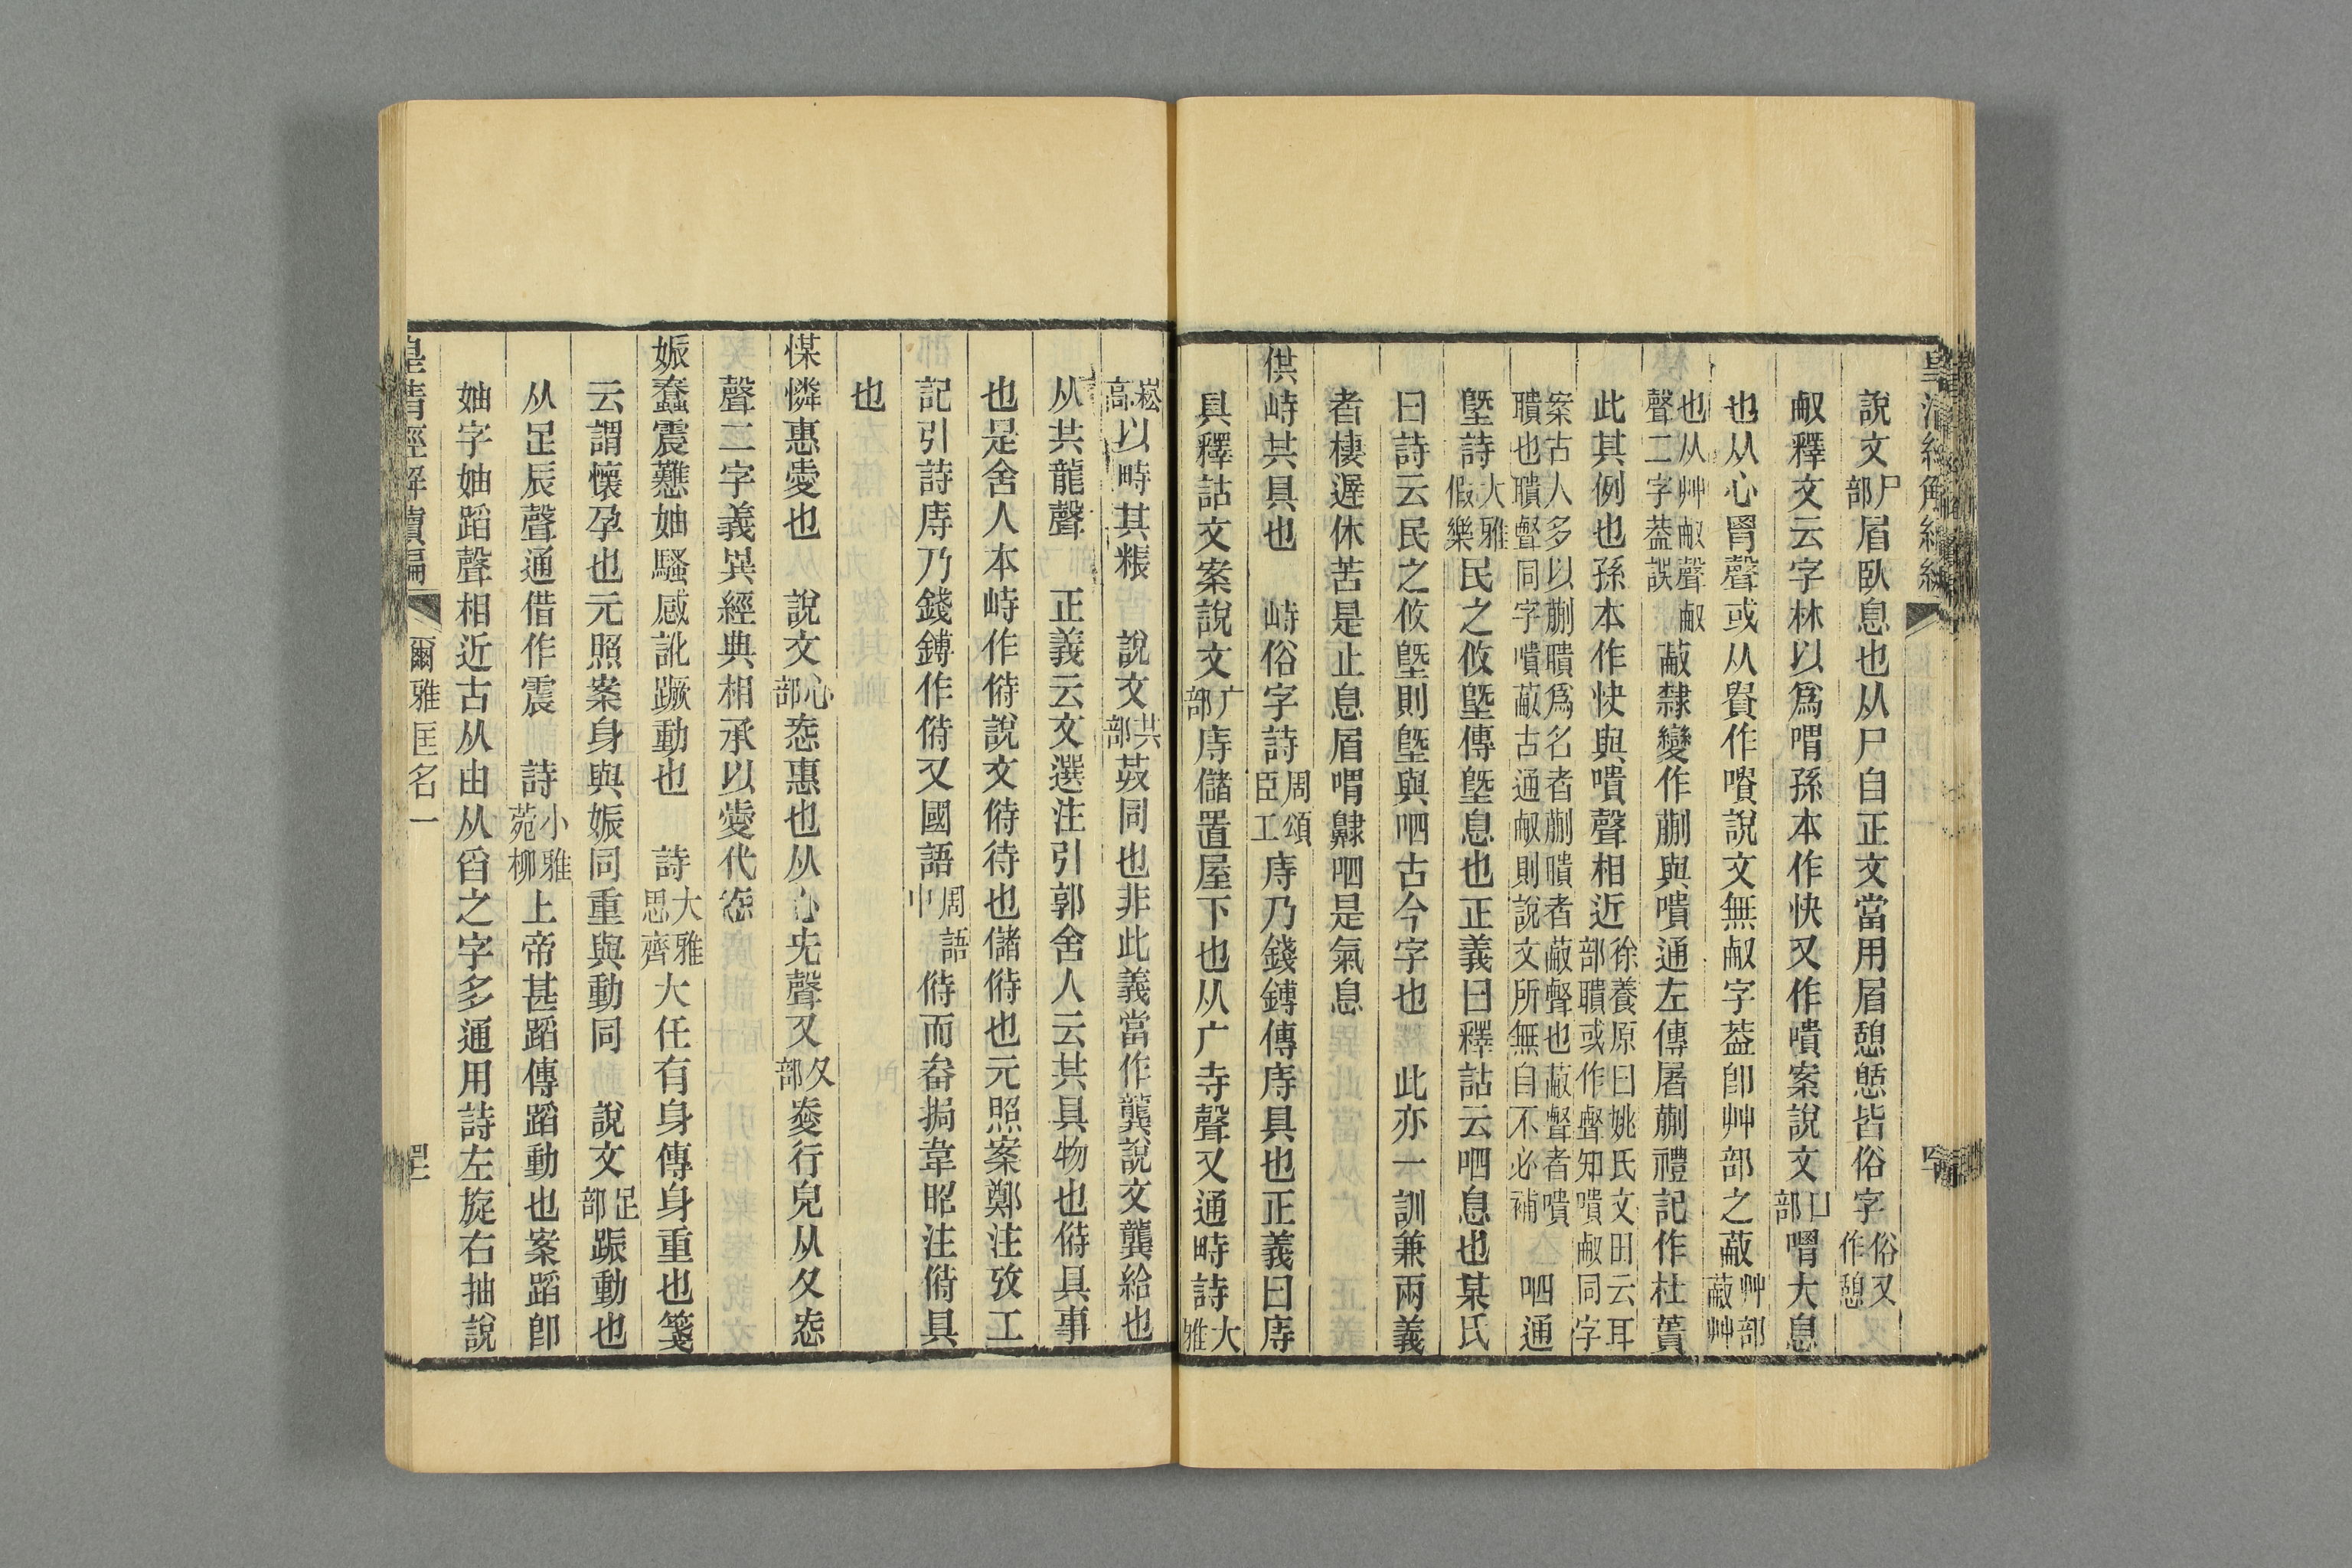 說文尸部眉臥息也从尸自正文當用眉憩憇皆俗字俗又作憩
𠭥釋文云字林以爲喟孫本作快又作嘳案說文口部喟大息
也从心胃聲或从貴作嘳說文無𠭥字葢卽艸部之蔽艸部蔽艸
也从艸𠭥聲𠭥聲二字葢誤 蔽隸變作蒯與嘳通左傳屠蒯禮記作杜蕢
此其例也孫本作快與嘳聲相近徐養原曰姚氏文田云耳部聵或作聾知嘳𠭥同字
案古人多以蒯聵爲名者蒯聵者蔽聾也蔽聾者嘳聵也聵聾同字嘳蔽古通𠭥則說文所無自不必補 呬通
墍詩大雅假樂民之攸墍墍傳墍息也正義曰釋詁云呬息也某氏
曰詩云民之攸墍則墍與呬古今字也 此亦一訓兼兩義
者棲遲休苦是止息眉喟齂呬是氣息
供峙共具也 峙俗字詩周頌臣工庤乃錢鎛傳庤具也正義曰庤
具釋詁文案說文广部庤儲置屋下也从广寺聲又通畤詩大雅
崧高以畤其粻 說文共部共同也非此義當作龔說文龔給也
从共龍聲 正義云文選注引郭舍人云共具物也偫具事
也是舍人本峙作偫說文偫待也儲偫也元照案鄭注攷工
記引詩庤乃錢鎛作偫又國語周語中偫而畚挶韋昭注偫具
也
㥕憐惠愛也 說文心部㤅惠也从心旡聲又夊部㤅行皃从夊㤅
聲二字義異經典相承以愛代㤅
娠蠢震戁妯騷感訛蹶動也 詩大雅思齊大任有身傳身重也箋
云謂懷孕也元照案身與娠同重與動同 說文足部踬動也
从足辰聲通借作震 詩小雅菀柳上帝甚蹈傳蹈動也案蹈卽
妯字妯蹈聲相近古从由从舀之字多通用詩左旋右抽說
皇淸經解續編 爾雅匡名一